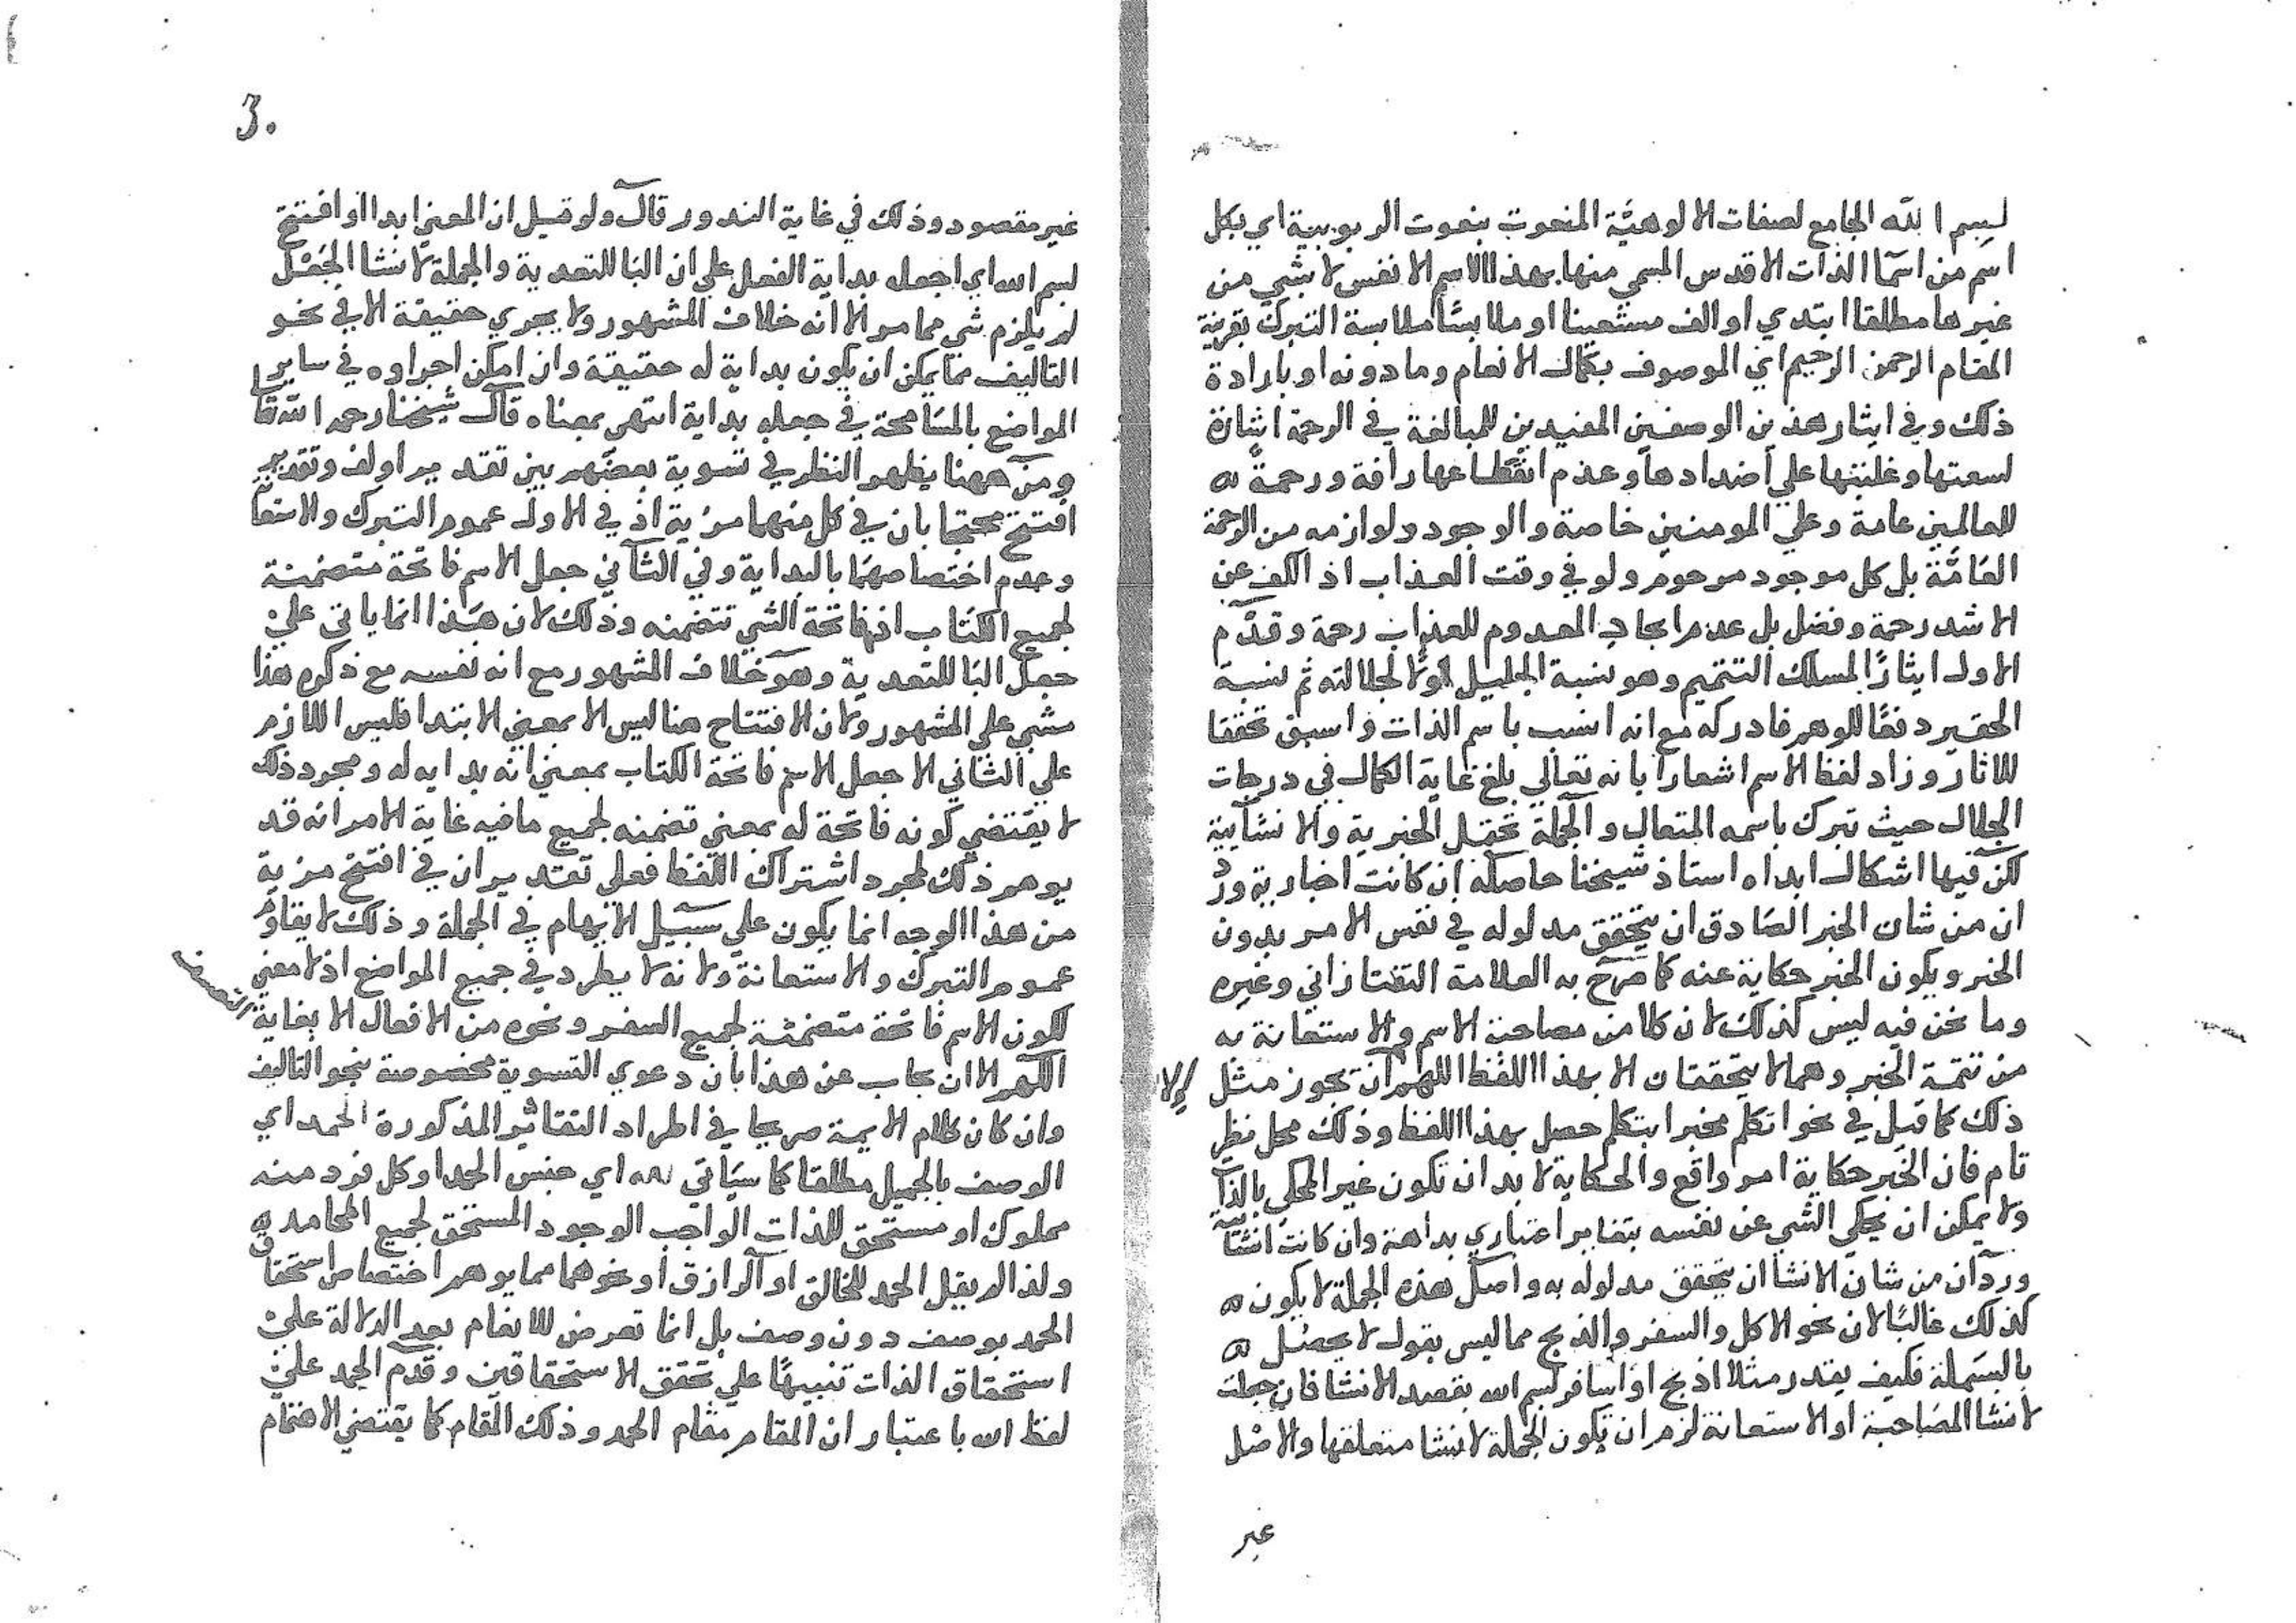 لبسم الله الجامع لصفات الالوهيَّة المنعوت بنعوت الربوبية اي بكل
اسم من اسما الذات الاقدس المسمى منها بهذا الاسم الانفس لا بشي من
غيرها مطلقا ابتدي او الف مستعينا او ملابسًا ملابسة التبرك بقرينة
المقام الرحمن الرحيم اي الموصوف بكمال الانعام وما دونه او بارادة
ذلك وفي ايثار هذين الوصفين المفيدين للمبالغة في الرحمة اشارة
لسعتها وغلبتها علي اضدادها وعدم انقطاعها رافة ورحمة
للعالمين عامة وعلي المومنين خاصة والوجود ولوازمه من الرحمة
العامَّة بل كل موجود مرحوم ولو في وقت العذاب اذ الكف عن
الاشد رحمة وفضل بل عدم ايجاد المعدوم للعذاب رحمة وقدَّم
الاول ايثارًا لمسلك التتميم وهو نسبة الجليل اولا لجلالته ثم نسبة
الحقير دفعًا للوهم فادركه مع انه انسب باسم الذات واسبق تحققا
للاثار وزاد لفظ الاسم اشعارا بانه تعالي بلغ غاية الكمال في درجات
الجلال حيث تبرك باسمه المتعال والجملة تحتمل الخبرية والانشآيية
لكن فيها اشكال ابداه استاذ شيخنا حاصله ان كانت اخبارية ورد
ان من شان الخبر الصادق ان يتحقق مدلوله في نفس الامر بدون
الخبر ويكون الخبر حكاية عنه كما صَرَّح به العلامة التفتازاني وغيره
وما نحن فيه ليس كذلك لان كلا من مصاحبة الاسم والاستعانة به
من تتمة الخبر وهما لا يتحققان الا بهذا اللفظ اللهم ان نجوز مثل
إلا
ذلك كما قيل في نحو اتكلم مخبرا بتكلم حصل بهذا اللفظ وذلك محل نظر
تام فان الخبر حكاية امر واقع والحكاية لا بد ان تكون غير المحكي بالذات
ولا يمكن ان يحكي الشي عن نفسه بتغاير اعتباري بداهة وان كانت انشائية
ورد ان من شان الانشا ان يتحقق مدلوله به واصل هذه الجملة لا يكون
كذلك غالبًا لان نحو الاكل والسفر والذبح مما ليس بقول لا يحصل
بالبسملة فكيف يقدر مثلا اذبح او اسافر بسم الله بقصد الانشا فان جعلت
لانشا المصَاحبة او الاستعانة لزم ان تكون الجملة لانشا متعلقها والاصْل
غير
3.
غير مقصود وذلك في غاية الندور قال ولو قيل ان المعني ابدا او افتتح
بسم الله اي اجعله بداية الفعل علي ان البا للتعدية والجملة لانشا الجَعْل
لم يلزم شي مما مر الا انه خلاف المشهور ولا يجري حقيقة الا في نحو
التاليف مما يمكن ان يكون بداية له حقيقة وان امكن اجراوه في ساير
المواضع بالمسَامحة في جعله بداية انتهي بمعناه قال شيخنا رحمه الله تعا
ومن ههنا يظهر النظر في تسوية بعضهم بين تقدير اولف وتقدير
افتتح محتجا بان في كل منهما مزية اذ في الاول عموم التبرك والاستعا
وعدم اختصاصهما بالبداية وفي الثاني جعل الاسم فاتحة متضمنة
لجميع الكتاب اذ فاتحة الشي تتضمنه وذلك لان هَذا انما ياتي علي
جعل البا للتعدية وهو خلاف المشهور مع انه نفسه مع ذكره هذا
مشي علي المشهور ولان الافتتاح هنا ليس الا بمعني الابتدا فليس اللازم
علي الثاني الا جعل الاسم فاتحة الكتاب بمعني انه بدايه له ومجرد ذلك
لا يقتضي كونه فاتحة له بمعني تضمنه لجميع ما فيه غاية الامر انه قد
يوهم ذلك لمجرد اشتراك اللفظ فعلي تقدير ان في افتتح مزية
من هذا الوجه انما يكون علي سَبيل الايهام في الجملة وذلك لا يقاوم
عموم التبرك والاستعانة ولانه لا يطرد في جميع المواضع اذ لا معني
لكون الاسم فاتحة متضمنة لجميع السفر ونحوه من الافعال الا بغاية
التعسف
اللهم الا ان يجاب عن هذا بان دعوي التسوية مخصوصة بنحو التاليف
وان كان كلام الايمة صريحا في اطراد التقادير المذكورة الحمد اي
الوصف بالجميل مطلقا كما سيَاتي اي جنس الحمد او كل فرد منه
مملوك او مستحق للذات الواجب الوجود المستحق لجميع المحامد
ولذا لم يقل الحمد للخالق او الرازق او نحوهما مما يوهم اختصاص استحقاق
الحمد بوصف دون وصف بل انما تعرض للانعام بعد الدلالة علي
استحقاق الذات تنبيهًا علي تحقق الاستحقاقين وقدَّم الحمد علي
لفظ الله باعتبار ان المقام مقام الحمد وذلك المقام كما يقتضي الاهتمام